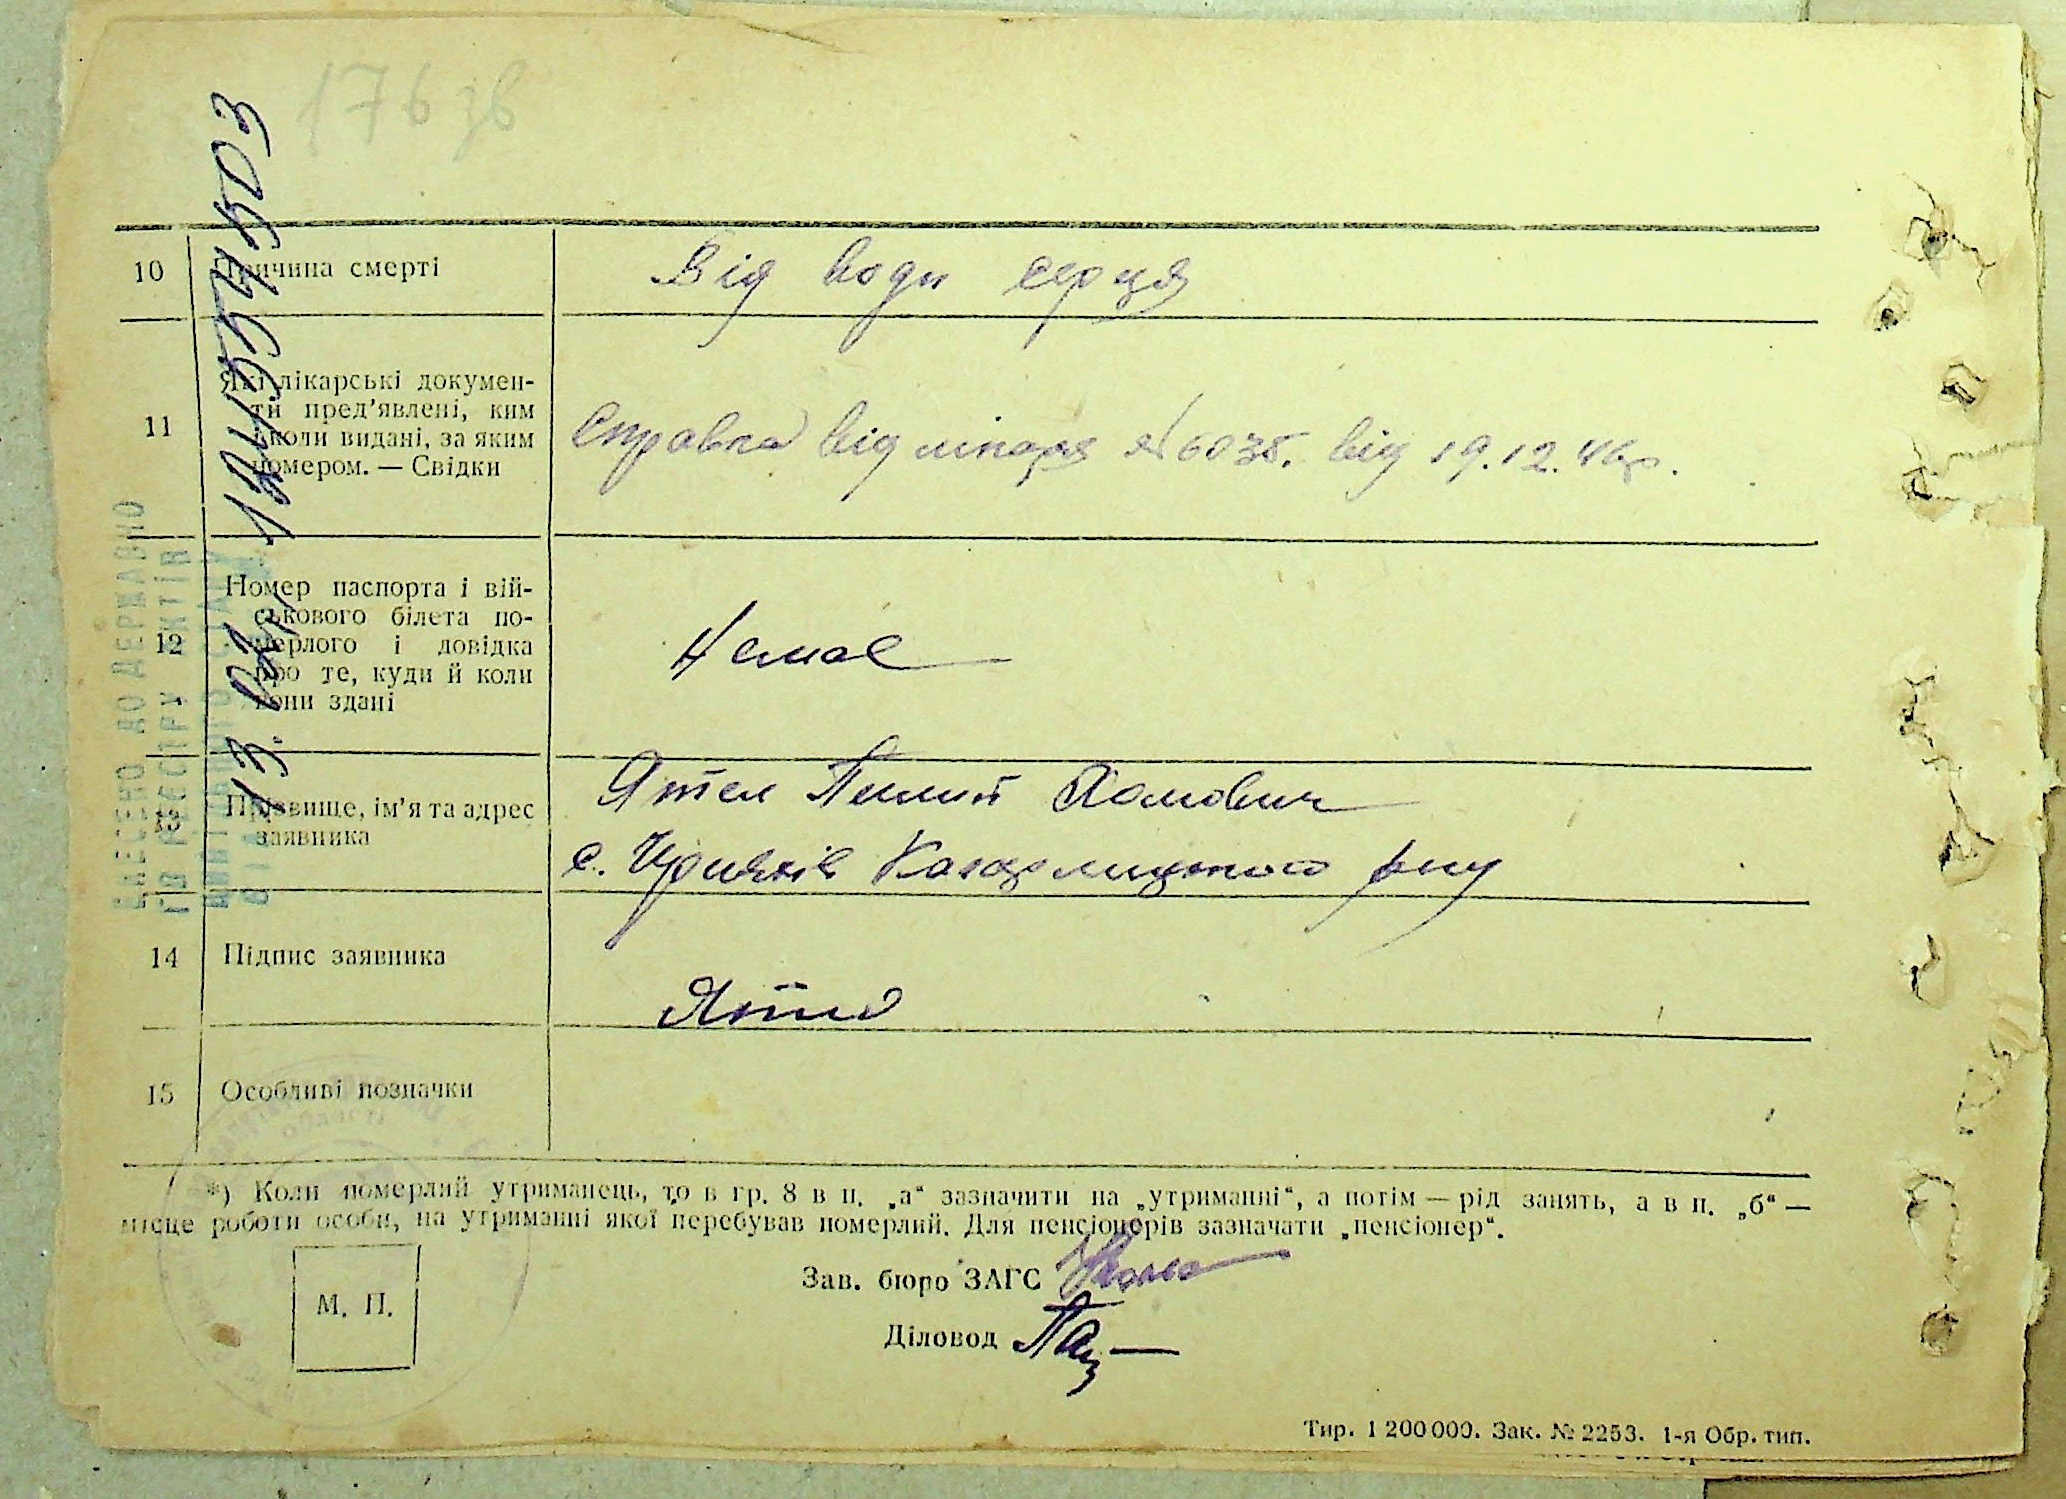 176 зв
10 Причина смерті Від води серця
11 Які лікарські докумен-
ти пред'явлені, ким
і коли видані, за яким
номером. — Свідки
Справка від лікаря № 6035. від 19.12.46р.
12 Номер паспорта і вій-
ськового білета по-
мерлого і довідка
про те, куди й коли
вони здані
Немає
13 Прізвище, ім'я та адрес
заявника
Ятел Пилип
с. Казарлицького р-ну
14 Підпис заявника
15 Особливі позначки
*) Коли померлий утриманець, то в гр. 8 в п. „а“ зазначити на „утриманні“, а потім — рід занять, а в п. „б“ —
місце роботи особи, на утриманні якої перебував померлий. Для пенсіонерів зазначати „пенсіонер“.
М. П.
Зав. бюро ЗАГС
Діловод
Тир. 1 200 000. Зак. № 2253. 1-я Обр. тип.
ВНЕСЕНО ДО ДЕРЖАВНО
ГО РЕЄСТРУ АКТІВ